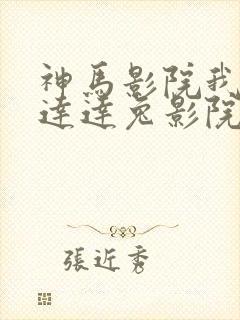 神馬影院我
達達兔影院
張近秀